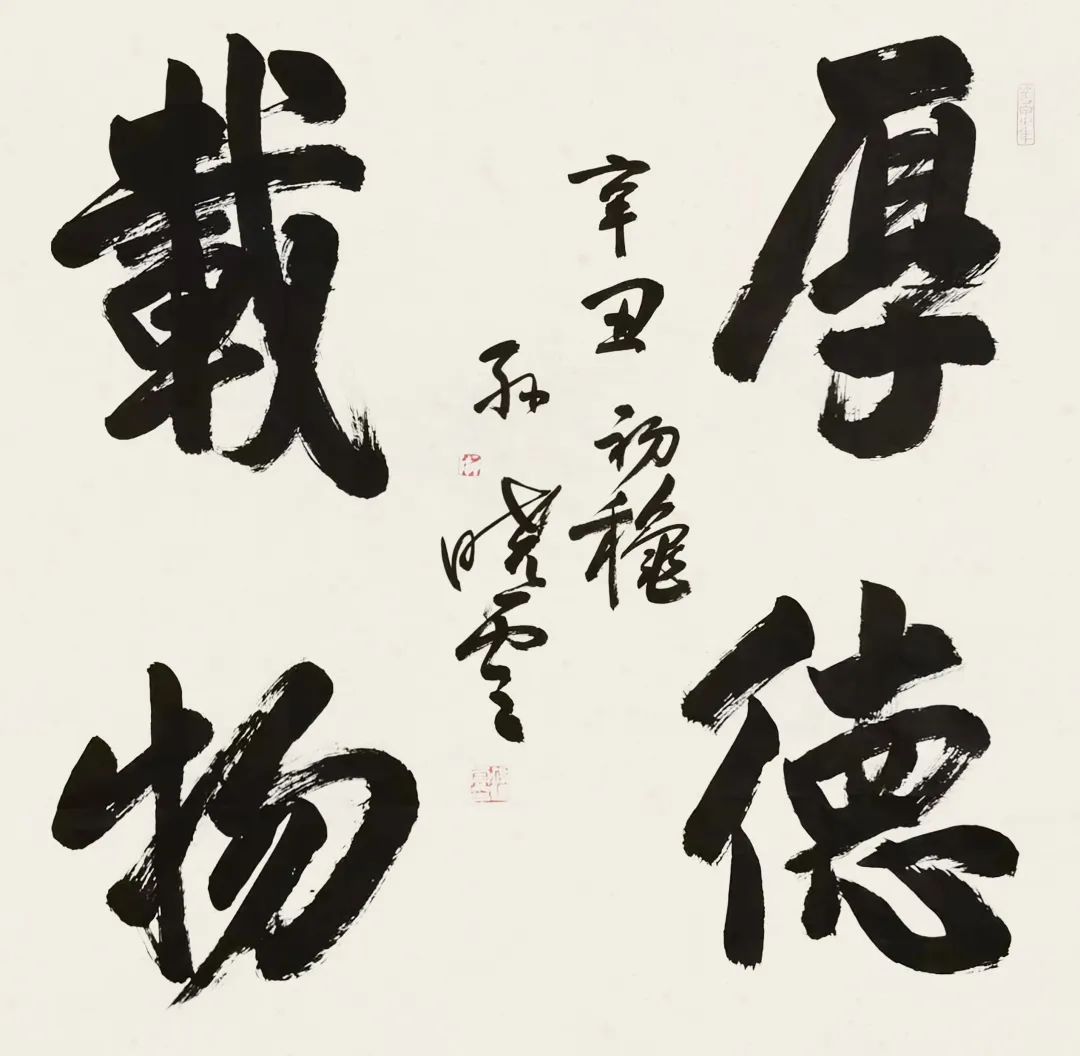 厚德
載物
辛丑初穐
孙晓雲